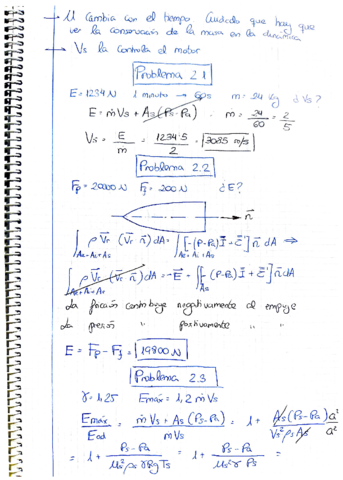 → M cambia con el tiempo Cuidado que hay que
ver la conservación de la masa en la dinámica
→ Vs la controla el motor
Problema 2.1
E=1234N 1 minuto → 60s m=24 kg ¿Vs?
E = ṁVs + As(Ps-Pa) ṁ = 24/60 = 2/5
Vs = E/ṁ = 1234·5/2 = 3085 m/s
Problema 2.2
Fp=20000N Ff=200N ¿E?
n⃗
∫ ρ V⃗r (V⃗r n⃗)dA = ∫ [-(P-Pa)I̿ + τ̿'] n⃗ dA ⇒
∫ ρ V⃗r (V⃗r n⃗)dA = -E⃗ + ∫ [-(P-Pa)I̿ + τ̿'] n⃗ dA
La fricción contribuye negativamente al empuje
La presión " positivamente " "
E = Fp - Ff = 19800N
Problema 2.3
γ=1,25 Emáx = 1,2 ṁVs
Emáx/Ead = (ṁVs + As(Ps-Pa))/ṁVs = 1 + As(Ps-Pa)/(Vs² ρs As) a²/a²
= 1 + (Ps-Pa)/(Ms² ρs γRg Ts) = 1 + (Ps-Pa)/(Ms² γ Ps) =